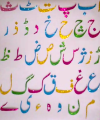 ا ب پ ت ٹ ث
ج چ ح خ د ڈ ذ
ر ڑ ز ژ س ش ص ض ط ظ
ع غ ف ق ک گ ل
م ن و ہ ھ ء ی ے